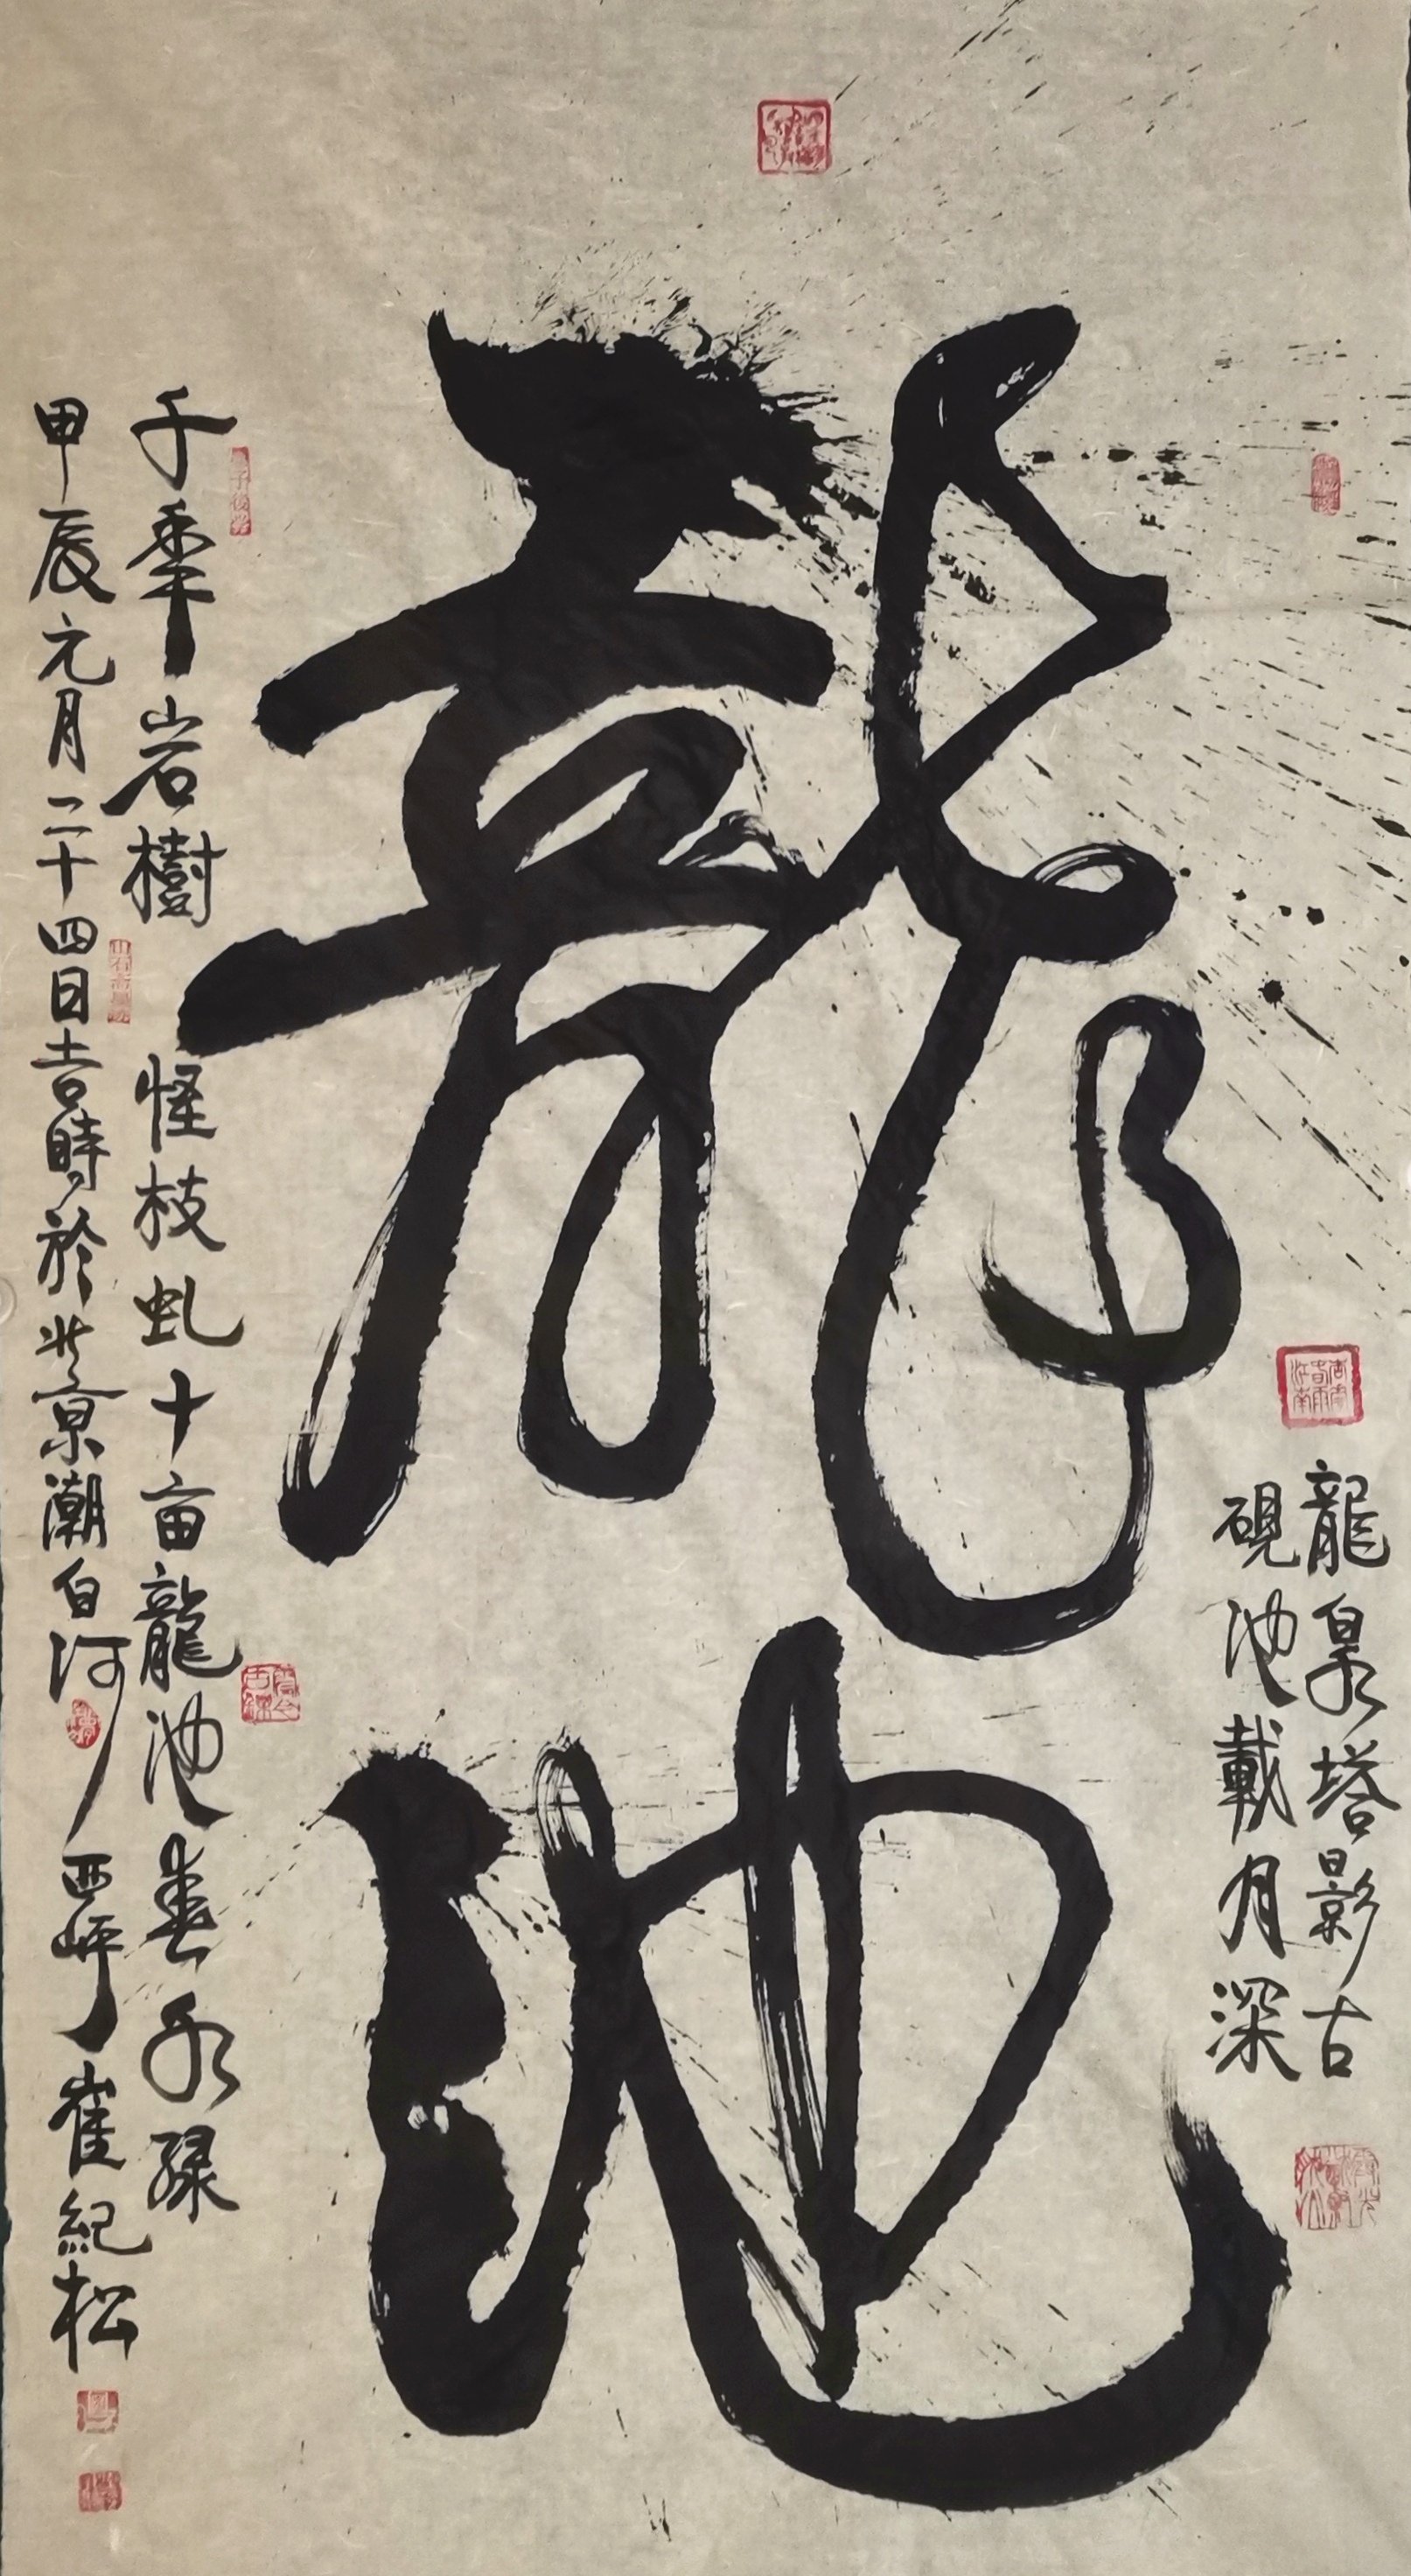 龍池
龍泉塔影古
硯池載月深
千年岩樹怪枝虬十亩龍池春水绿
甲辰元月二十四日吉時於北京潮白河西岸崔紀松